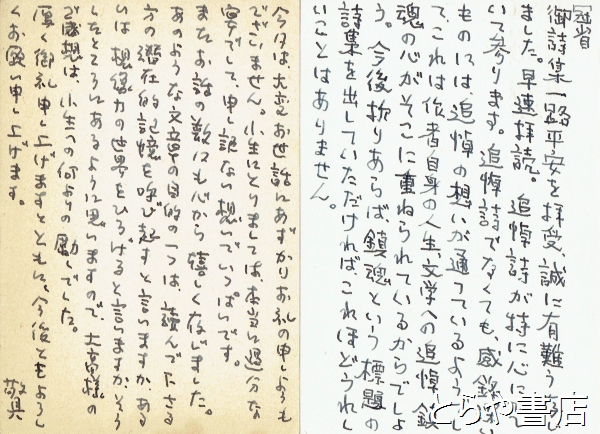 冠省
御詩集一路平安を拝受、誠に有難うあし
ました。早速拝読。追悼詩が特に心にして
いて参ります。追悼詩でなくても、感銘
ものには追悼の想いが通っているようし
て、これは作者自身の人生、文学への追悼、鎮
魂の心がそこに重ねられているからでしょ
う。今後折りあらば、鎮魂という標題の
詩集を出していただければ、これほどうれし
いことはありません。
今日は、大変お世話にあずかりお礼の申しようも
ございません。小生にとりましては本当に過分な
宴でして、申し訳ない想いでいっぱいです。
またお話の数々にも心から嬉しく存じました。
あのような文章の目的の一つは、読んで下さる
方の潜在的記憶を呼び起すと言いますか、ある
いは想像力の世界をひろげると言いますか、そう
したところにあるように思いますので、大高様の
ご感想は、小生への何よりの励しでした。
厚く御礼申し上げますとともに、今後ともよろし
くお願い申し上げます。
敬具
とらや書店